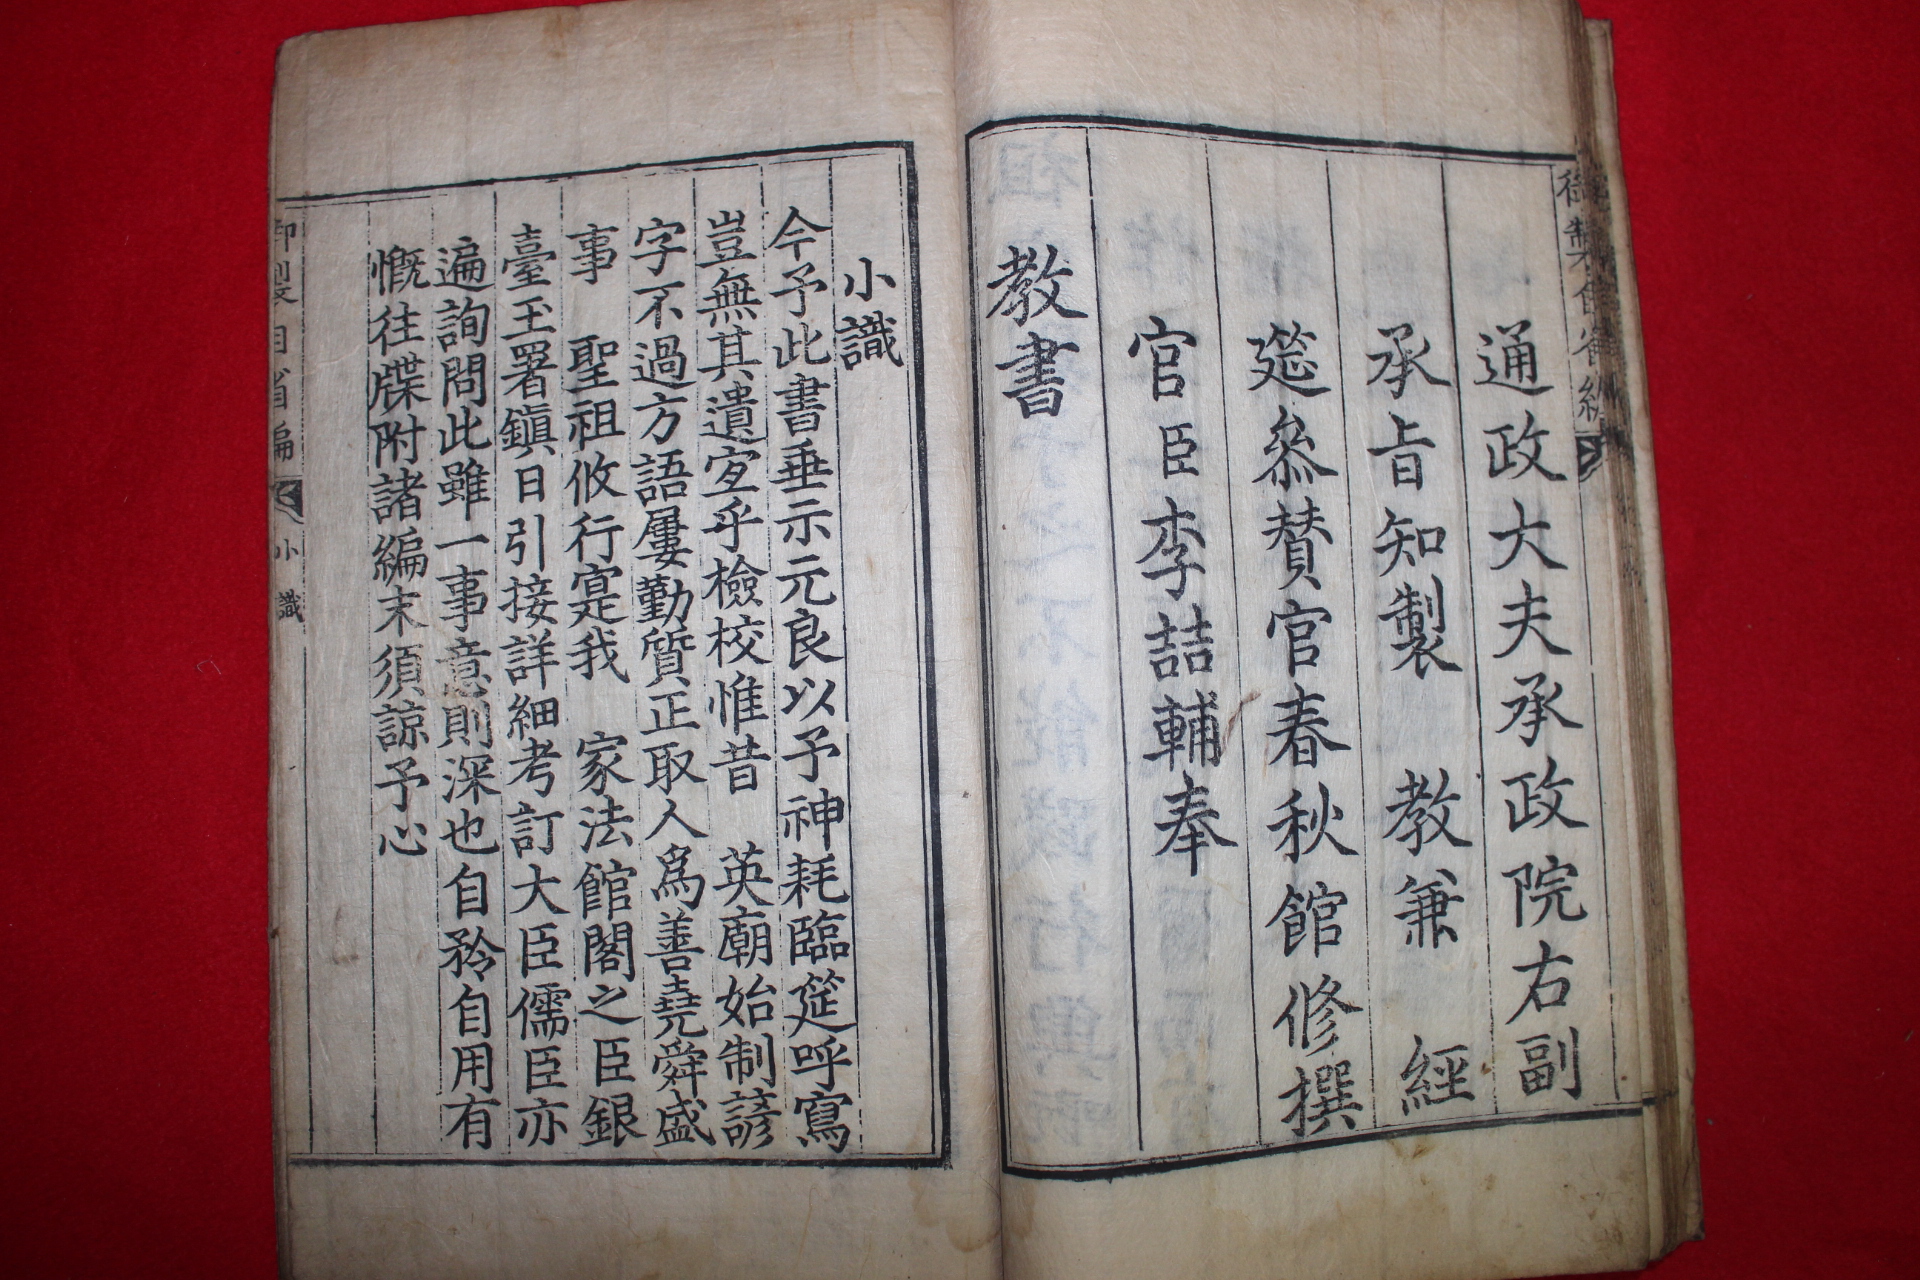 通政大夫承政院右副
承旨知製 教兼 經
筵參贊官春秋館修撰
官臣李喆輔奉
教書
小識
今予此書垂示元良以予神耗臨筵呼寫
豈無其遺寔乎檢校惟昔 英廟始制諺
字不過方語屢勤質正取人爲善堯舜盛
事 聖祖攸行寔我 家法館閣之臣銀
臺玉署鎭日引接詳細考訂大臣儒臣亦
遍詢問此雖一事意則深也自矜自用有
慨往牒附諸編末須諒予心
御製自省編
小識